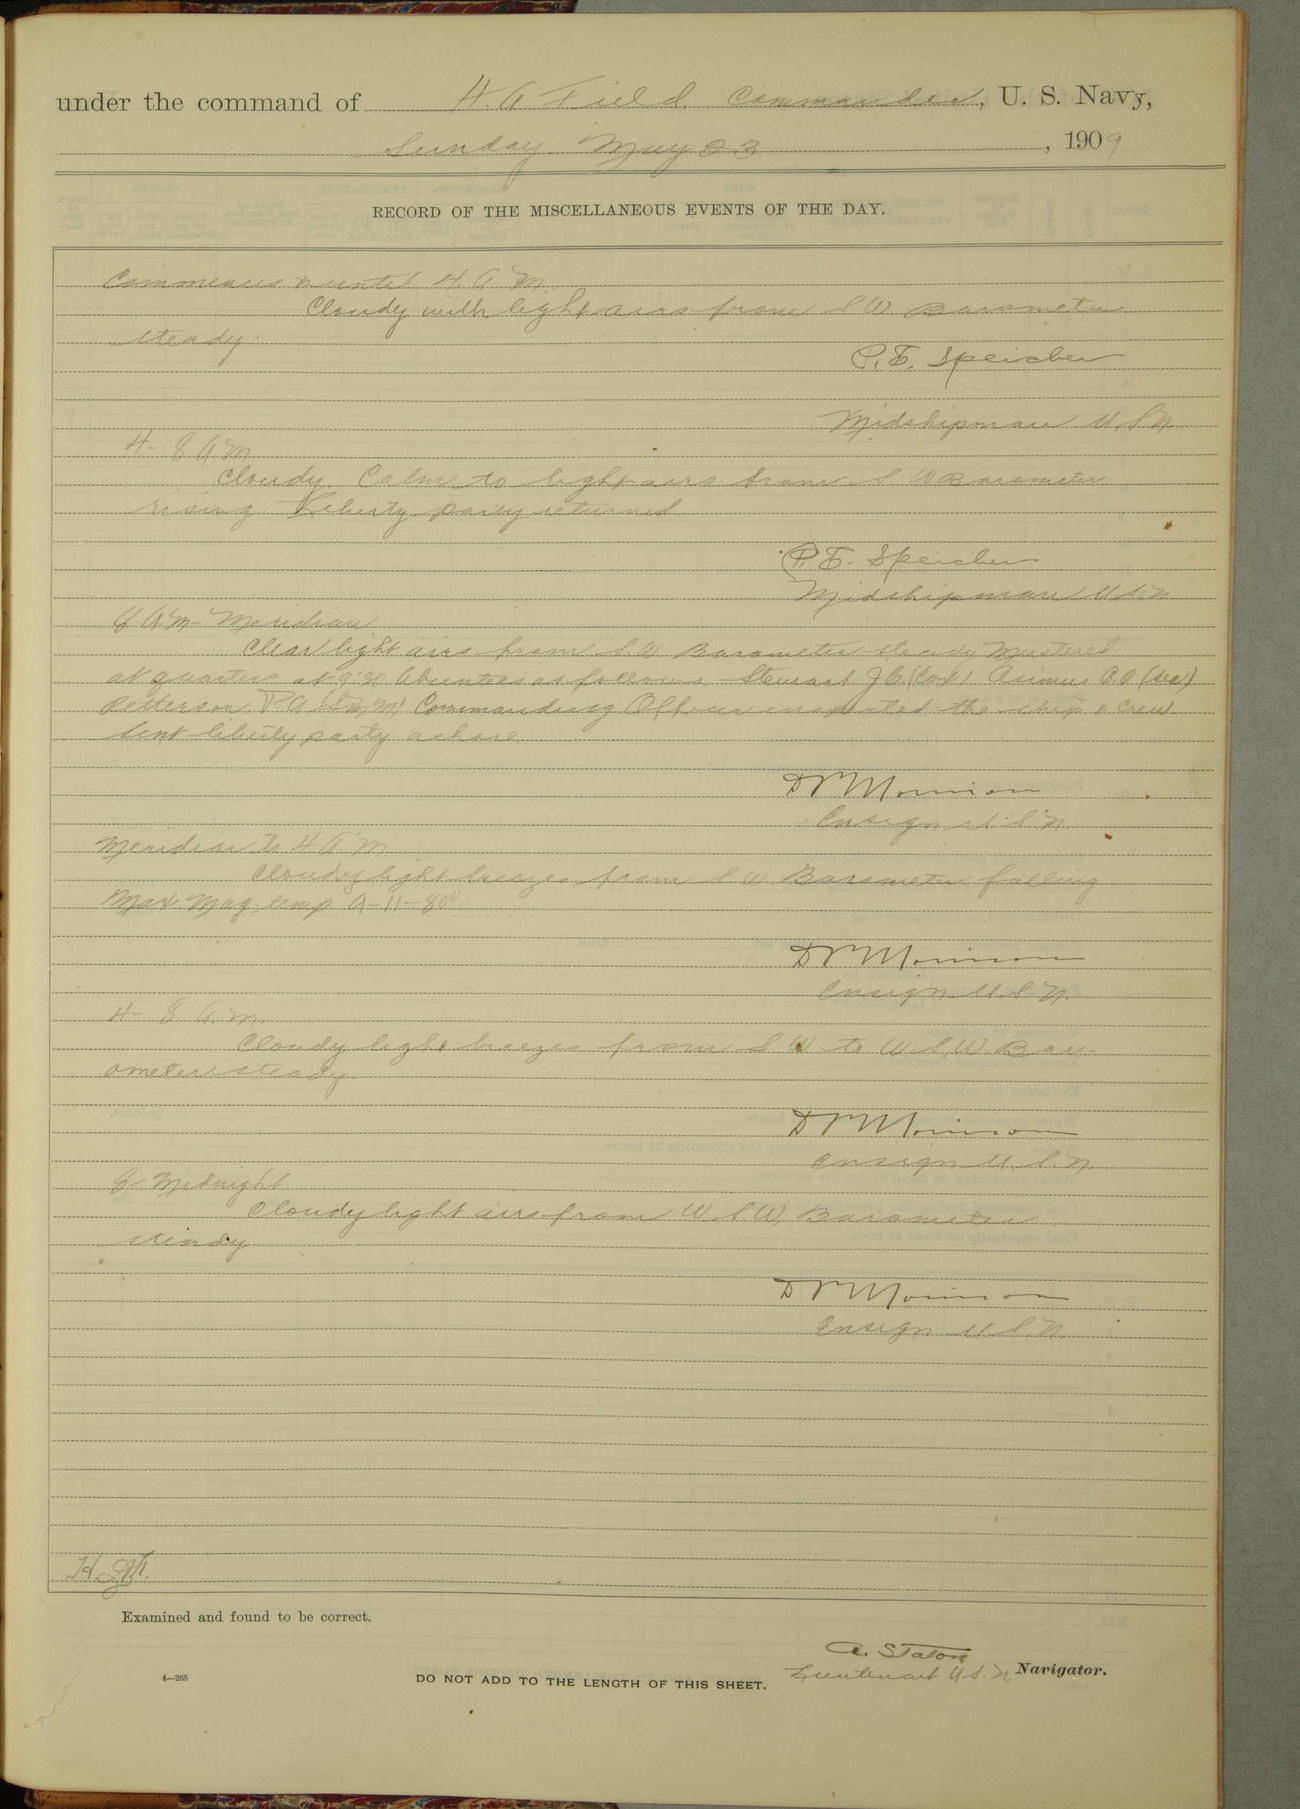 under the command of H. A Field Commander, U. S. Navy,
Sunday May 23, 1909
RECORD OF THE MISCELLANEOUS EVENTS OF THE DAY.
Commences & until 4 A M
Cloudy with light airs from S W Barometer
steady.
P. E. Speicher
Midshipman U. S. N.
4- 8 A M
Cloudy. Calm to light airs from S. W Barometer
rising Liberty party returned
P. E. Speicher
Midshipman U S. N
8 A M- Meridian
Clear light airs from S W Barometer steady Mustered
at quarters at 9:30 Absentees as follows, Stewart J. C. (Cox)
Petterson, P. A Commanding Officer inspected the ship & crew
Sent liberty party ashore.
Morrison
Ensign U. S. N.
Meridian to 4 A M
Cloudy light breezes from S W. Barometer falling
Max Mag. temp A-11-80°
Morrison
Ensign U. S. N.
4- 8 A. M.
Cloudy light breezes from S W to W. S. W. Bar-
ometer steady
Morrison
Ensign U. S. N.
8- Midnight
Cloudy light airs from W. S. W. Barometer
steady
Morrison
Ensign U. S. N.
Examined and found to be correct.
A. Staton
Lieutenant U. S. N Navigator.
4—265
DO NOT ADD TO THE LENGTH OF THIS SHEET.